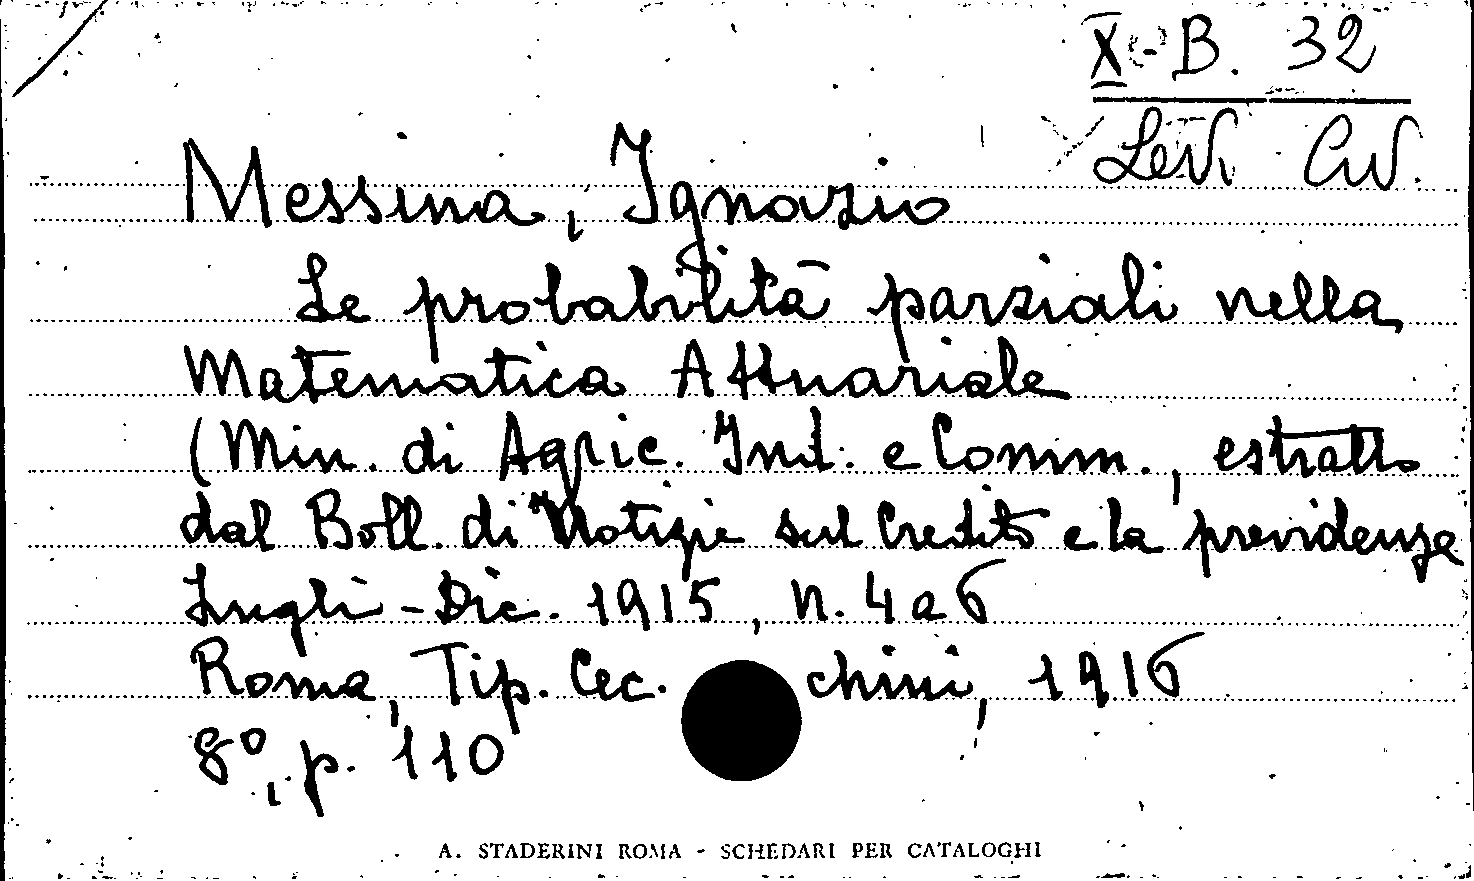 X-B. 32
Levi Civ.
Messina, Ignazio
Le probabilità parziali nella
Matematica Attuariale
(Min. di Agric. Ind. e Comm., estratto
dal Boll. di Notizie sul Credito e la previdenza
Lugli-Dic. 1915, n. 4 a 6
Roma, Tip. Cec. chini, 1916
8º, p. 110
A. STADERINI ROMA - SCHEDARI PER CATALOGHI